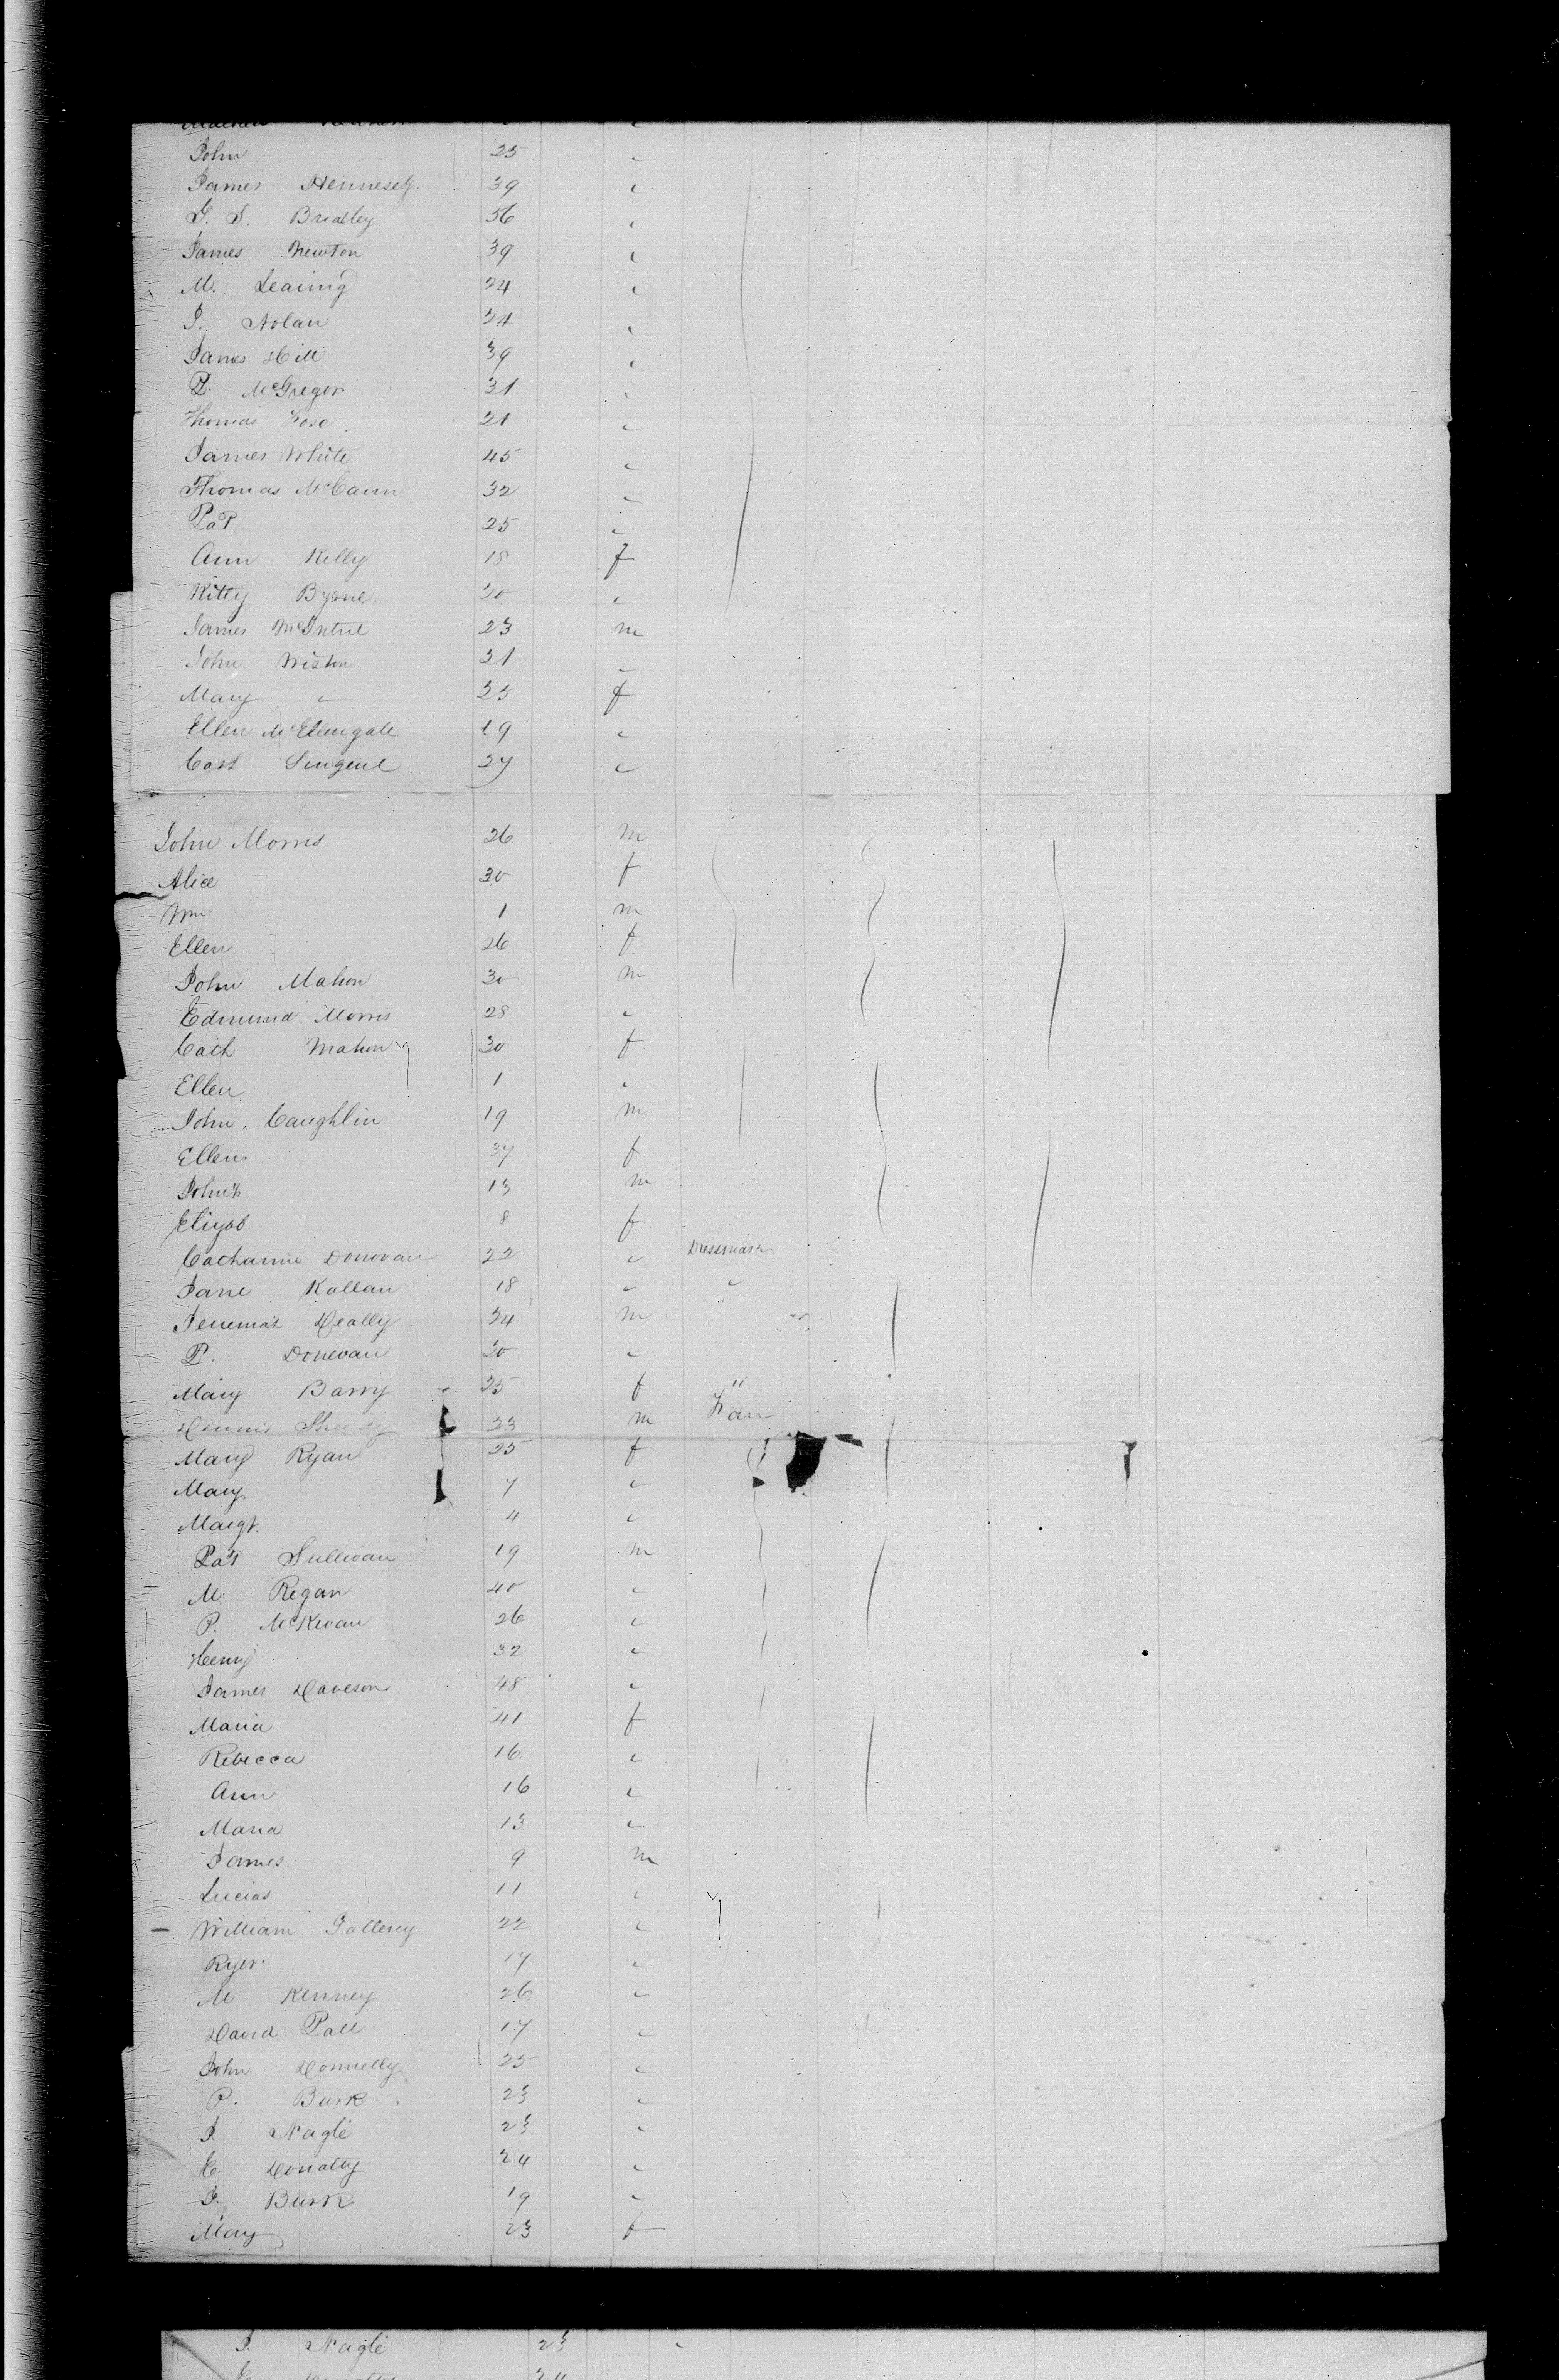 John 25 "
James Hennesey. 39 "
G. S. Bradley 56 "
James Newton 39 "
M. Leaving 24 "
J. Nolan 34 "
James Hill 39 "
P. McGregor 31 "
Thomas 21 "
James White 45 "
Thomas McCann 32 "
Pat 25 "
Ann Kelly 18 f
Kitty Byrne 30 "
James McIntire 23 m
John Wiston 31 "
Mary " 35 f
Ellen 19 "
Cath 37 "
John Morris 26 m
Alice 30 f
Wm 1 m
Ellen 26 f
John Mahon 30 m
Edmund Morris 28 "
Cath Mahon 30 f
Ellen 1 "
John Caughlin 19 m
Ellen 37 f
John 13 m
Elizab 8 f
Catharine Donovan 22 " Dressmakr
Jane Kallan 18 " "
Jeremiah Heally 34 m
P. Donevan 30 "
Mary Barry 35 f "
Dennis 23 m
Mary Ryan 25 f
Mary 7 "
Margt. 4 "
Pat Sullivan 19 m
M. Regan 40 "
P. McKevan 26 "
Henry 32 "
James Daveson 48 "
Maria 41 f
Rebecca 16 "
Ann 16 "
Maria 13 "
James 9 m
Lucias 11 "
William Gallerey 22 "
17 "
M Kenney 26 "
David 17 "
John Donnelly 25 "
P. Burk 23 "
J. Nagle 23 "
24 "
J. Burk 19 "
Mary 23 f
J. Nagle 23 "